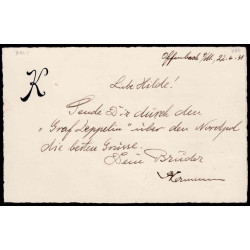 Offenbach a/M., 22.6.31
K
Liebe Hilde!
Sende Dir durch den
"Graf Zeppelin" über den Nordpol
die besten Grüsse.
Dein Bruder
Hermann